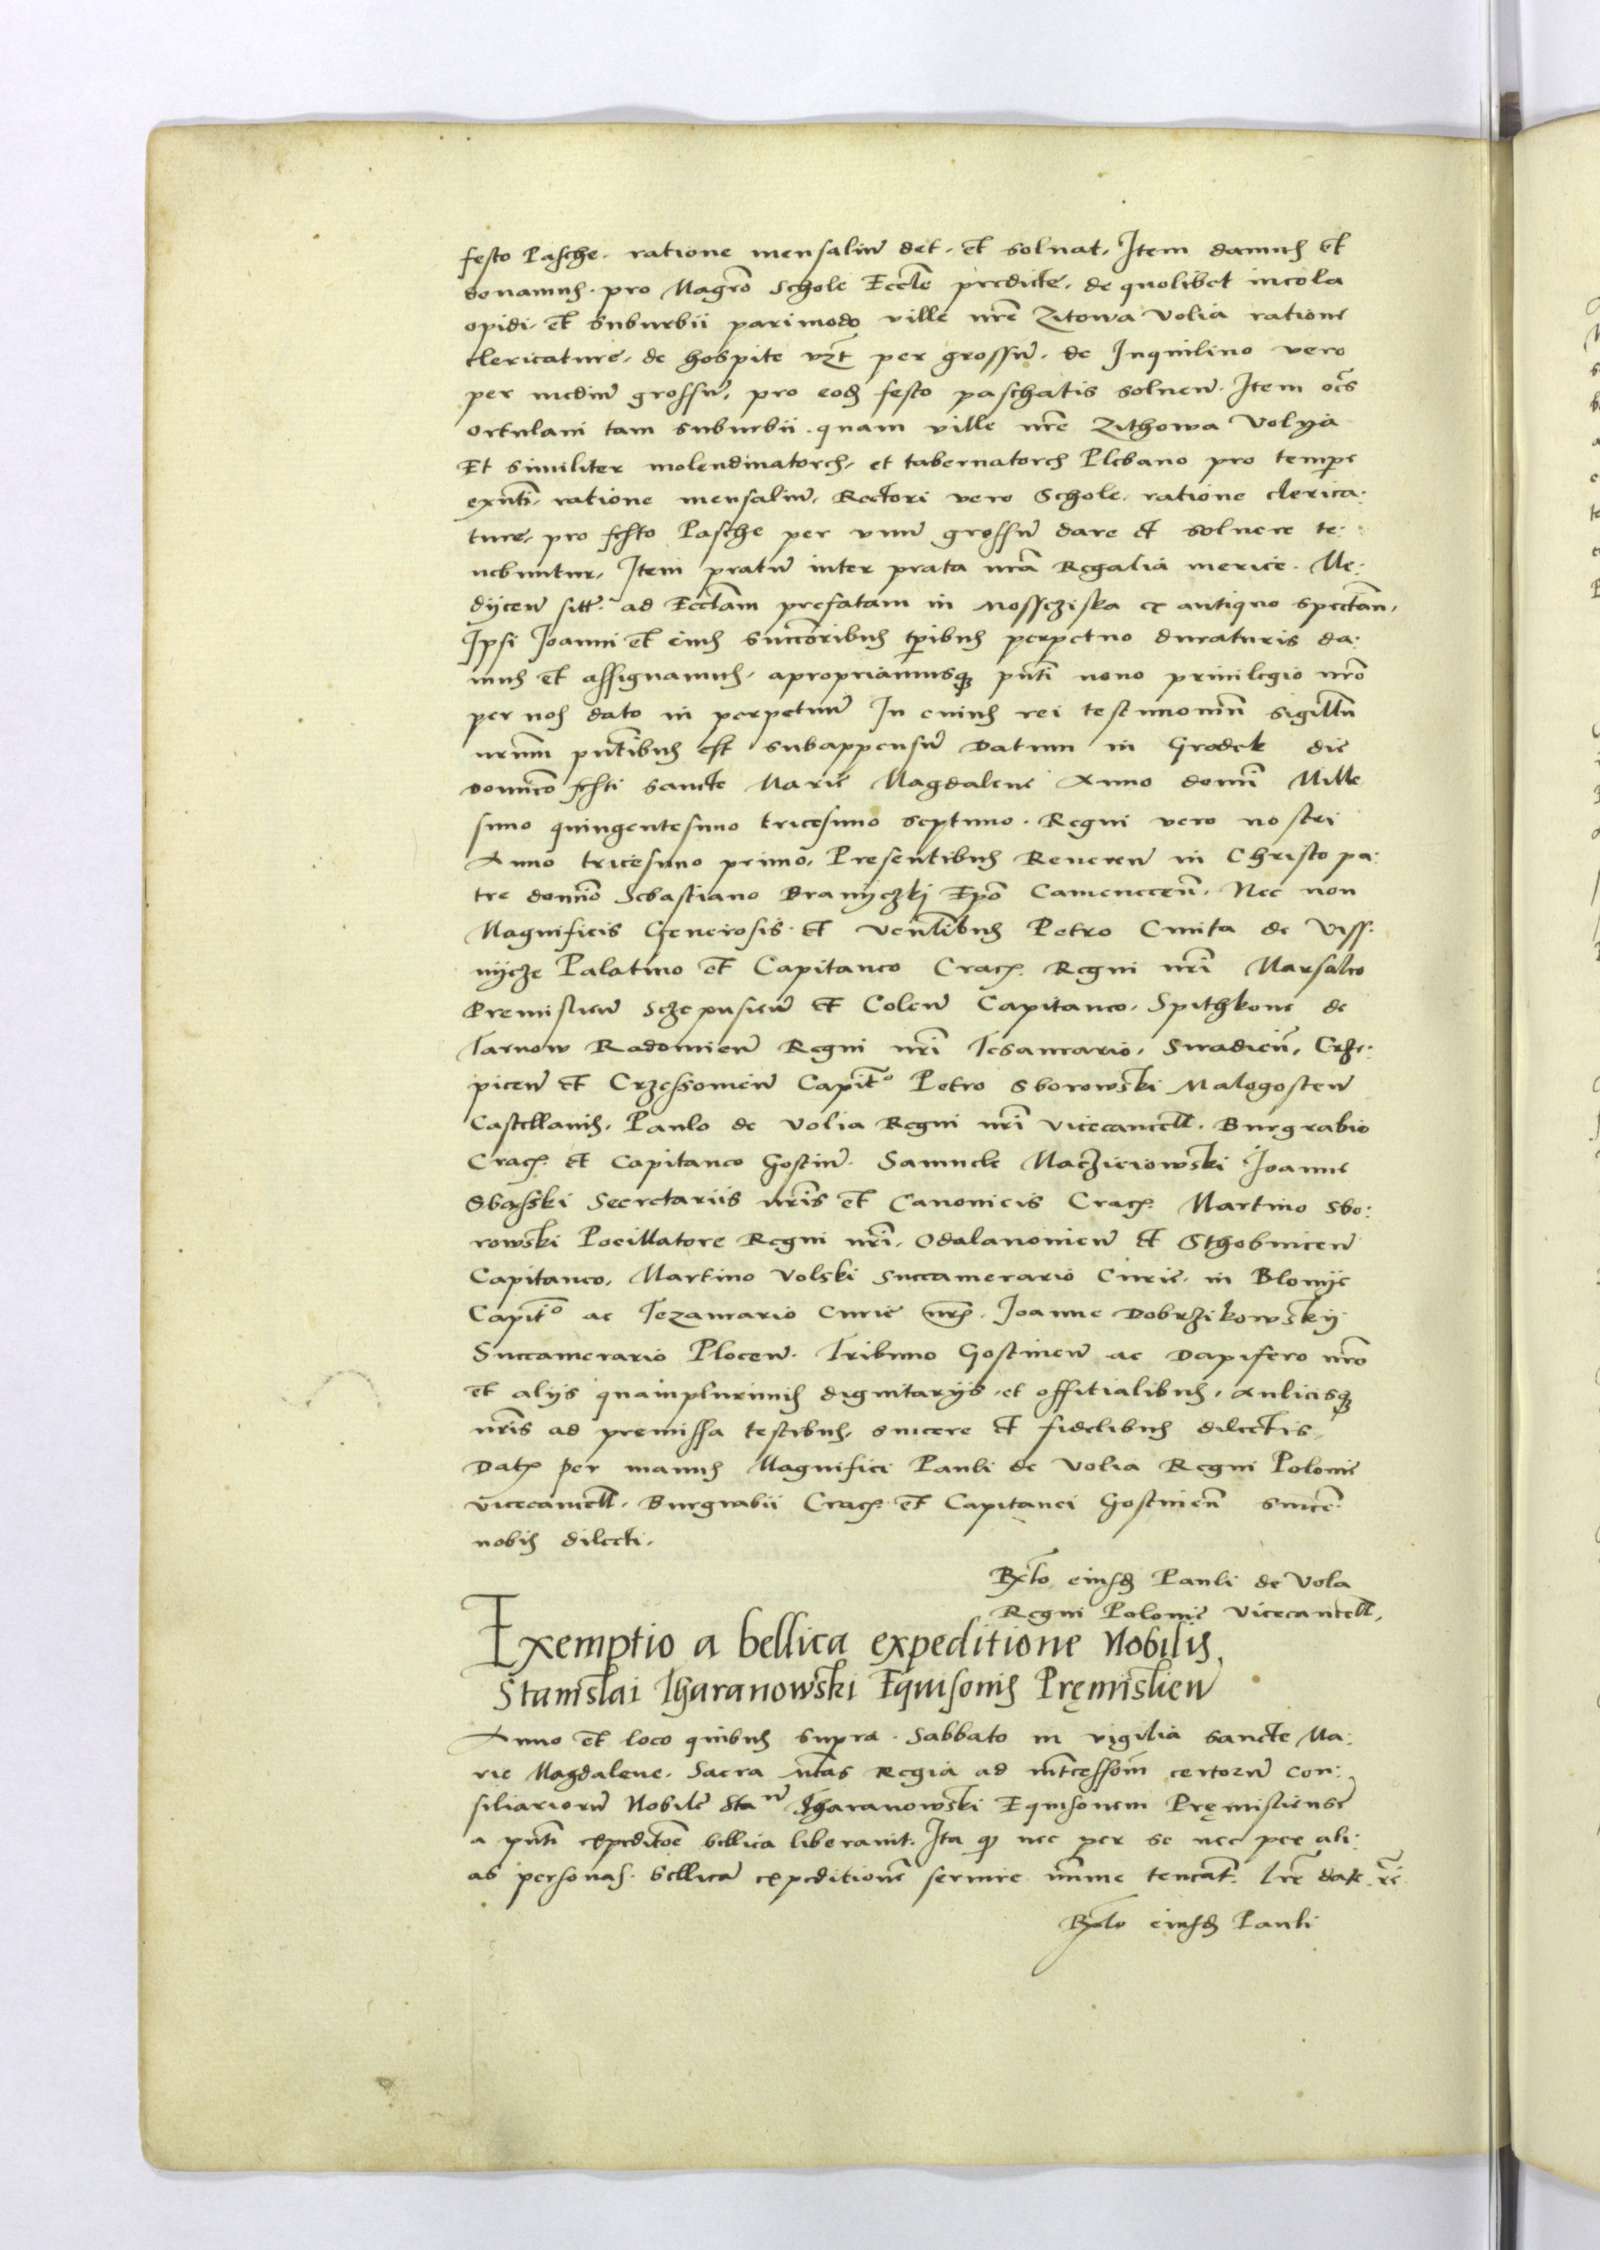 festo Pasche. ratione mensaliũ det. et soluat. Item damus et
donamus. pro Magrõ Schole Eccle predicte. de quolibet incola
opidi. et suburbii parimodo ville nrẽ Zitowa Volia ratione
clericature. de hospite vzt per grossũ. de Inquilino vero
per mediũ grossũ, pro eod festo paschatis soluen̄. Item oẽs
ortulani tam suburbii. quam ville nrẽ Zithowa Volya
Et similiter molendinatores, et tabernatores Plebano pro tempe
exñti. ratione mensaliũ, Rectori vero Schole. ratione clerica:
ture, pro festo Pasche per vnũ grossũ dare et soluere te:
nebuntur, Item pratũ inter prata nrã Regalia merice. Me:
dycen̄ sitt. ad Ecclam prefatam in Mosscziska ex antiquo spectan̄,
Ipsi Joanni et eius successoribus tpĩbus perpetuo duraturis da:
mus et assignamus. apropriamusq̃ pñti nouo priuilegio nrõ
per nos dato in perpetuũ In cuius rei testimoniũ sigillũ
nrũm pñtibus est subappensũ Datum in Grodek die
Dominico festi sancte Marie Magdalene Anno domi Mille
simo quingentesimo tricesimo septimo. Regni vero nostri
Anno tricesimo primo, Presentibus Reueren̄ in Christo pa:
tre domĩo Sebastiano Branyczkj Epõ Camenecen̄. Nec non
Magnificis Generosis. et Venlibus Petro Cmita de Viss:
nycze Palatino et Capitaneo Crac. Regni nrĩ Marsalco
Premislien̄ Sczepusien̄ et Colen̄ Capitaneo. Spithkone de
Tarnow Radomien̄ Regni nrĩ Tesaurario, Siradien̄, Crze:
picen̄ et Crzessouien̄ Capit.º Petro Sborowski Malogosten̄
Castellanis. Paulo de Volia Regni nrĩ vicecancell. Burgrabio
Crac. et Capitaneo Gostin̄. Samuele Maczieiowski Joanne
Sbasski Secretariis nrĩs et Canonicis Crac. Martino Sbo:
rowski Pocillatore Regni nrĩ. Odalanouien̄ et Sthobnicen̄
Capitaneo, Martino Volski Succamerario Curie. in Blonye
Capit.º ac Tezaurario Curie nrẽ. Joanne Dobrzikowsky
Succamerario Plocen̄. Tribuno Gostinen̄ ac Dapifero nrõ
et alys quamplurimis dignitarys. et offitialibus. aulicisq̃
nrĩs ad premissa testibus, sincere et fidelibus dilectis,
Dat. per manus Magnifici Pauli de Volia Regni Polonie
vicecancell. Burgrabii Crac. et Capitanei Gostinen̄ sincẽ:
nobis dilecti.
Rlto eiusd Pauli de Vola
Regni Polonie Vicecancell,
Exemptio a bellica expeditione Nobilis,
Stanislai Tharanowski Equisonis Pręmislien̄
Anno et loco quibus supra. Sabbato in vigilia sancte Ma:
rie Magdalene. Sacra Mtas Regia ad intcessiom̃ certorũ con:
siliariorũ Nobilẽ Staũ Tharanowski Equisonem Pręmisliensẽ
a pñti expeditõe bellica liberauit. Ita q̃ nec per se nec per ali:
as personas. bellicã expeditionẽ seruire minime teneat. Lrẽ date rẽ
Rlto eiusd Pauli